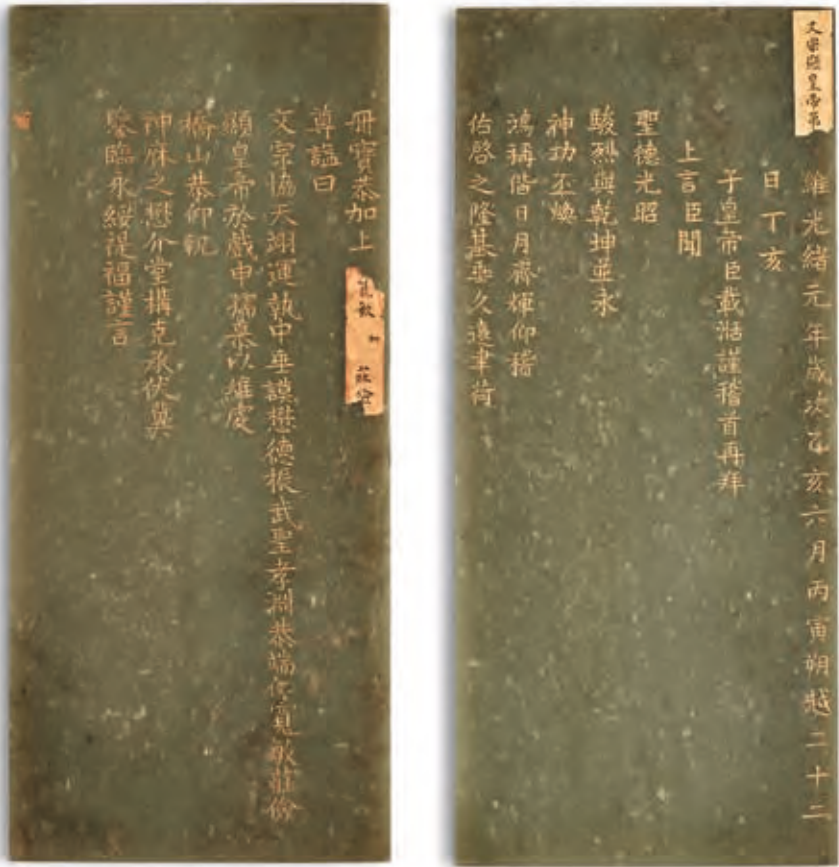 文宗顯皇帝
維光緒元年歲次乙亥六月丙寅朔越二十二
日丁亥
子皇帝臣載湉謹稽首再拜
上言臣聞
聖德光昭
駿烈與乾坤並永
神功丕煥
鴻稱偕日月齊輝仰稽
佑啓之隆基垂久遠聿荷
冊寶恭加上
寬敏 莊儉
尊諡曰
文宗協天翊運執中垂謨懋德振武聖孝淵恭端仁寬敏莊儉
顯皇帝於戲申孺慕以維虔
橋山恭仰祝
神庥之懋介堂構克承伏冀
鑒臨永綏禔福謹言